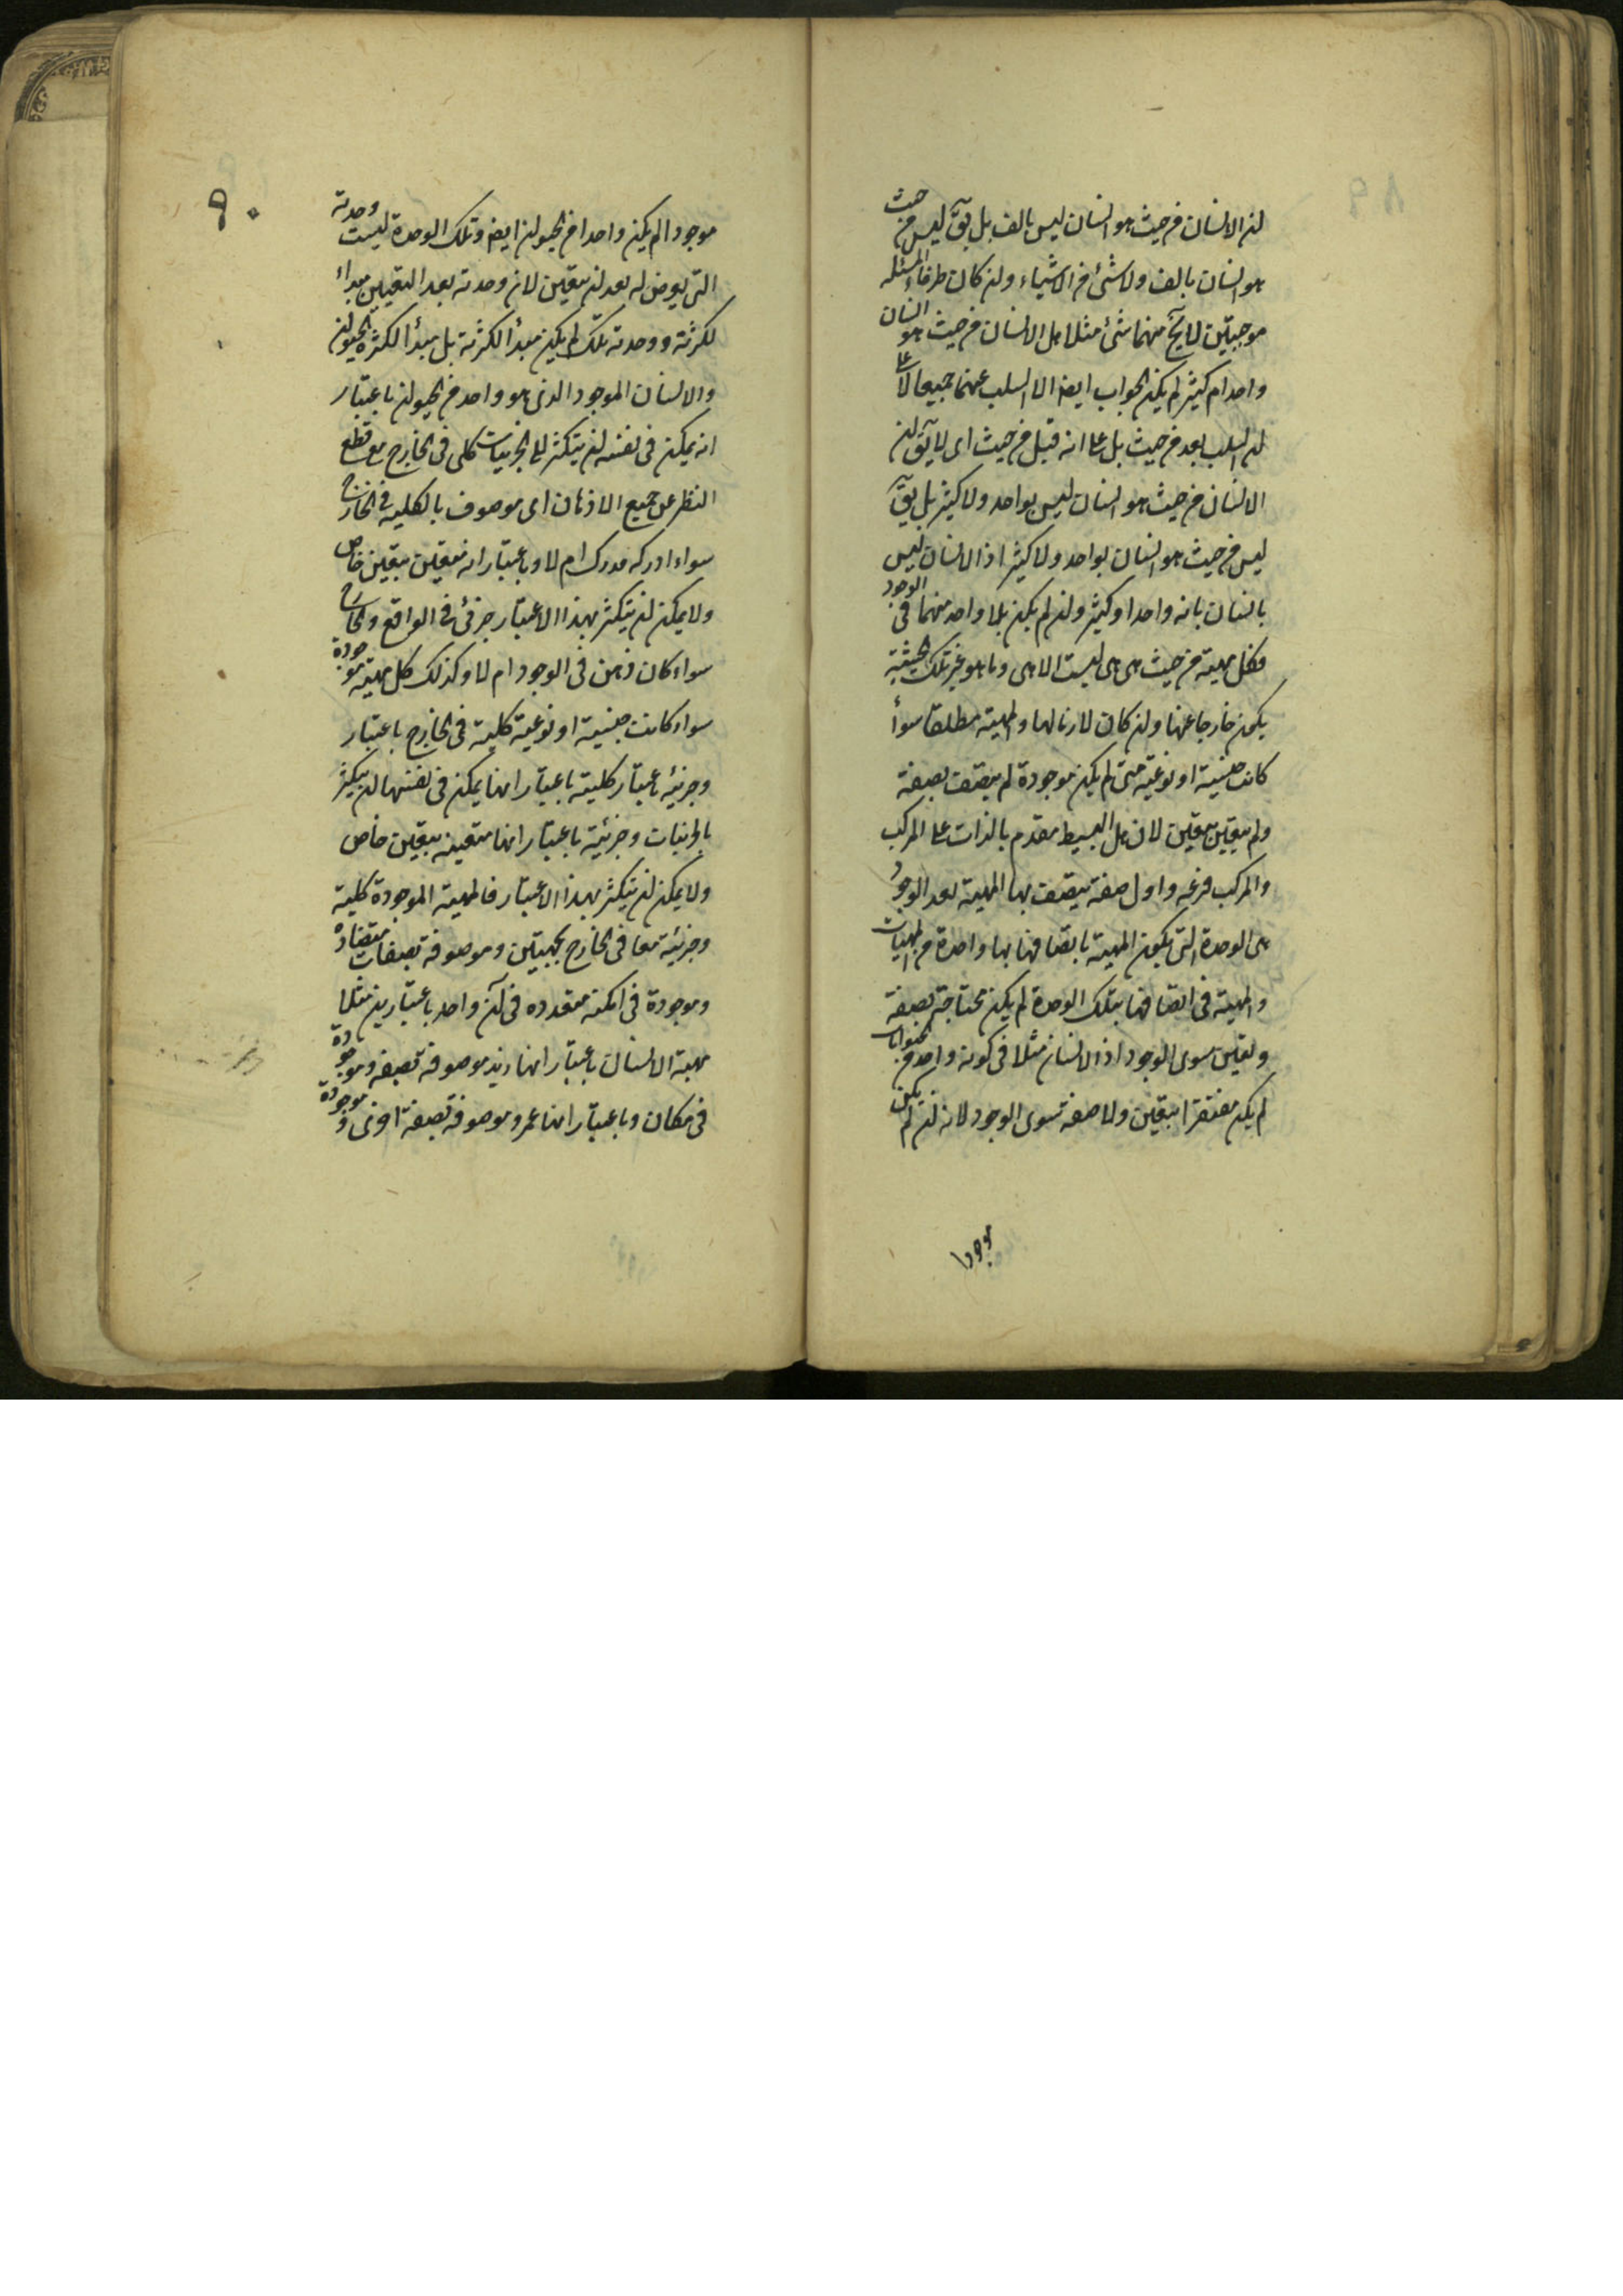 لن الانسان من حيث هو انسان ليس بالف بل يقّ ليس من حيث
هو انسان بالف ولا شئ من الاشياء ولن كان طرفا المسئله
موجبتين لا يخ منهما شئ مثلا هل الانسان من حيث هو انسان
واحد ام كثير لم يكن الجواب ايضا الا السلب عنهما جميعا لا على
لن السلب بعد من حيث بل على انه قبل من حيث اى لا يقّ لن
الانسان من حيث هو انسان ليس بواحد ولا كثير بل يقّ
ليس من حيث هو انسان بواحد ولا كثير اذ الانسان ليس
بانسان بانه واحد او كثير ولن لم يكن بلا واحد منهما فى الوجود
فكل مهية من حيث هى هى ليست الا هى وما هو غير تلك الحيثية
يكون خارجا عنها ولن كان لازما لها والمهية مطلقا سوأ
كانت جنسية او نوعية متى لم يكن موجودة لم يتصف بصفة
ولم يتعين بتعين لان هل البسيط مقدم بالذات على المركب
والمركب فرعه واول صفة يتصف بها المهية بعد الوجود
هى الوحدة التى يكون المهية باتصافها بها واحدة من المهيات
والمهية فى اتصافها بتلك الوحدة لم يكن محتاجة بصفة
وتعين سوى الوجود اذ الانسان مثلا فى كونه واحد من الحيوانات
لم يكن مفتقرا بتعين ولا صفة سوى الوجود لانه لن لم يكن
موجودا
٩٠
موجودا لم يكن واحدا من الحيولن ايضا وتلك الوحدة ليست وحدته
التى يعرض له بعد لن يتعين لان وحدته بعد التعين مبداء
لكثرته ووحدته تلك لم يكن مبدأ لكثرته بل مبدأ لكثرة الحيولن
والانسان الموجود الذى هو واحد من الحيولن باعتبار
انه يمكن فى نفسه لن يتكثر الى الجزئيات كلى فى الخارج مع قطع
النظر عن جميع الاذهان اى موصوف بالكلية فى الخارج
سواء ادركه مدرك ام لا وباعتبار انه متعين بتعين خاص
ولا يمكن لن يتكثر بهذا الاعتبار جزئى فى الواقع والخارج
سواء كان ذهن فى الوجود ام لا وكذلك كل مهية موجودة
سواء كانت جنسية او نوعية كلية فى الخارج باعتبار
وجزئيه باعتبار كلية باعتبار انها يمكن فى نفسها لن يتكثر
بالجزئيات وجزئية باعتبار انها متعينه بتعين خاص
ولا يمكن لن يتكثر بهذا الاعتبار فالمهية الموجودة كلية
وجزئية معا فى الخارج بجهتين وموصوفة بصفات متضادة
وموجودة فى امكنه متعدده فى آن واحد باعتبارين مثلا
مهية الانسان باعتبار انها زيد موصوفة بصفه وموجودة
فى مكان وباعتبار انها عمرو موصوفة بصفة اخرى وموجودة